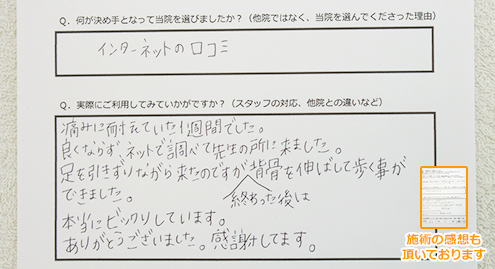 Q．何が決め手となって当院を選びましたか？（他院ではなく、当院を選んでくださった理由）
インターネットの口コミ
Q．実際にご利用してみていかがですか？（スタッフの対応、他院との違いなど）
痛みに耐えていた1週間でした。
良くならずネットで調べて先生の所に来ました。
足を引きずりながら来たのですが背骨を伸ばして歩く事が
できました。 終わった後は
本当にビックリしています。
ありがとうございました。感謝してます。
施術の感想も
頂いております